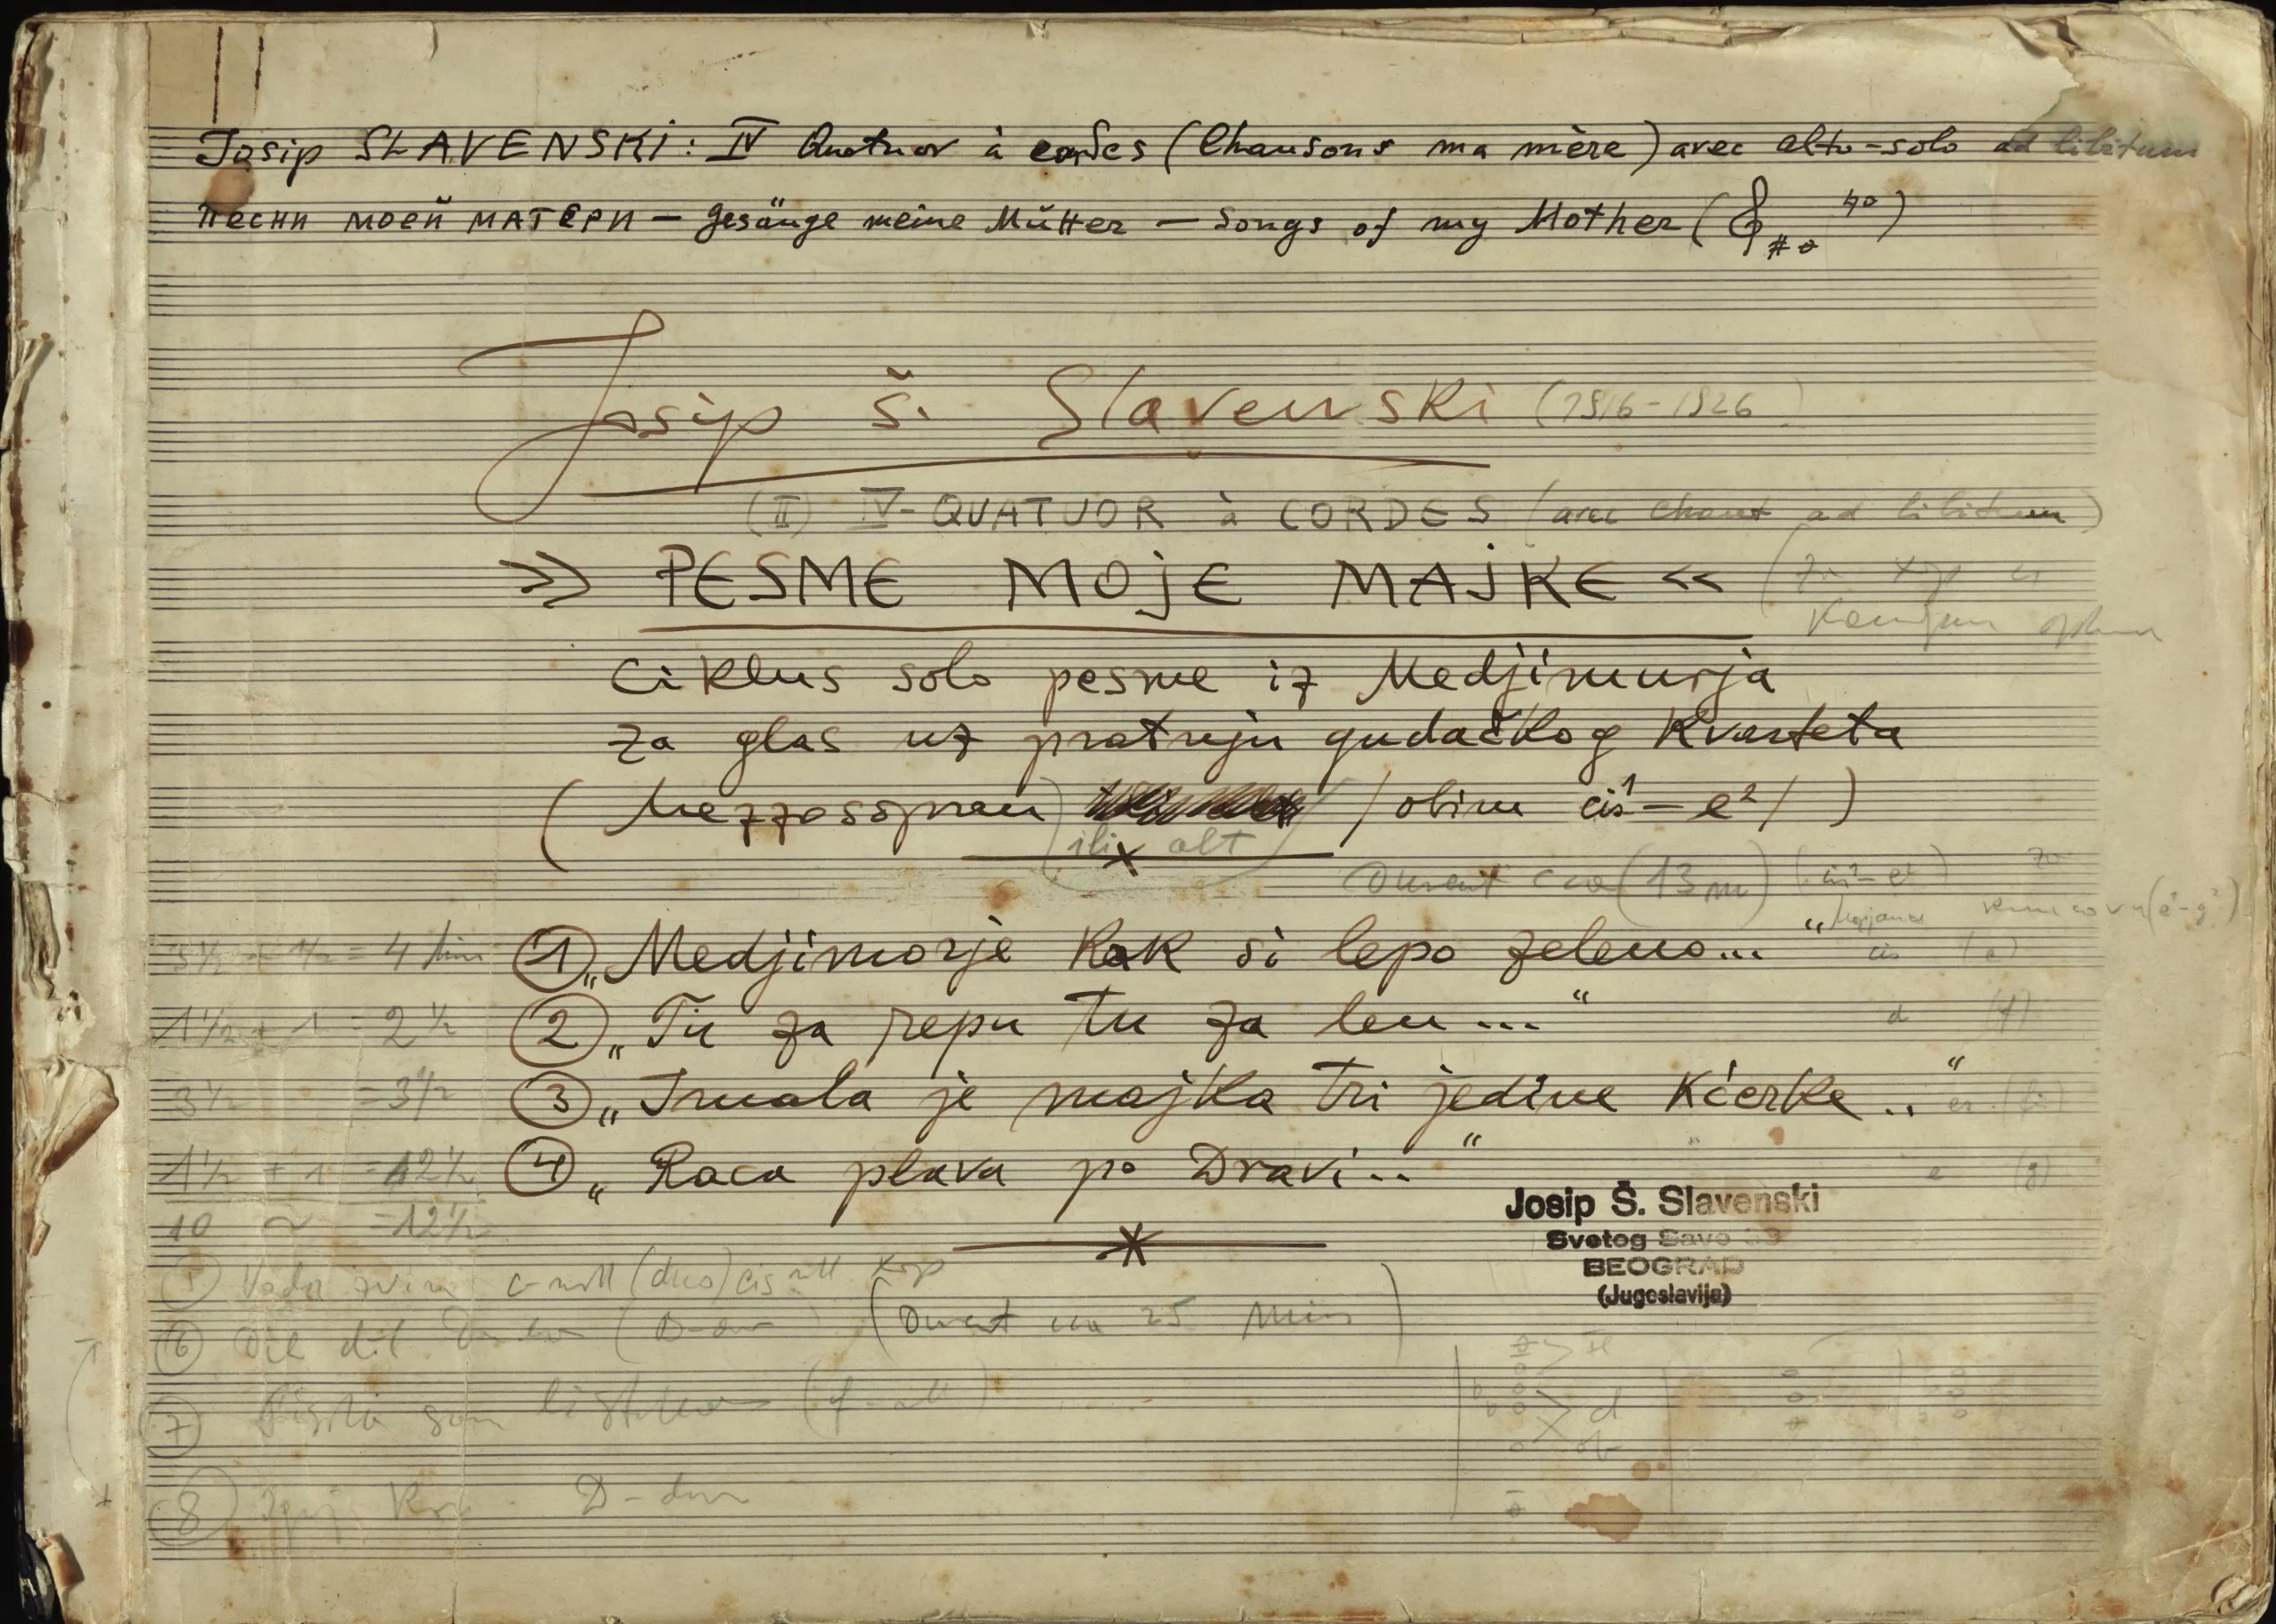 Josip SLAVENSKI: IV Quatuor à cordes (Chansons ma mère) avec alto-solo ad libitum
песни моей матери — gesänge meine Mütter — songs of my Mother (
Josip Š. Slavenski (1916-1926)
(II) IV-QUATUOR à CORDES (avec chant ad libitum)
» PESME MOJE MAJKE «
Ciklus solo pesme iz Medjimurja
za glas uz pratnju gudačkog kvarteta
(Mezzosopran) /obim cis¹ — e²/ )
(ili alt)
Durent cca (13 m) (cis¹-e²) za
3½ + ½ = 4 min ① „Medjimorje kak si lepo zeleno..."
cis (e)
1½ + 1 = 2½ ② „Tu za repu tu za len..." d (f)
3½ = 3½ ③ „Imala je majka tri jedine kćerke.."
1½ + 1 = 2½ ④ „Raca plava po Dravi.." e (g)
10 ~ = 12½
Josip Š. Slavenski
Svetog Save 33
BEOGRAD
(Jugoslavija)
① Voda zvira c-moll (duo) cis moll
(Durent cca 25 Min)
⑥ (D-dur)
⑦
⑧ D-dur